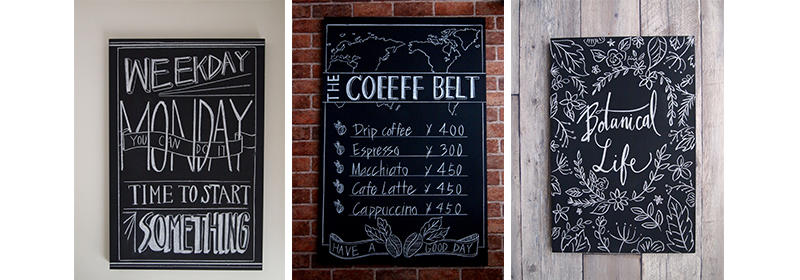 WEEKDAY
MONDAY
YOU CAN DO IT
TIME TO START
SOMETHING
THE COEEFF BELT
Drip coffee ¥400
Espresso ¥300
Macchiato ¥450
Cafe Latte ¥450
Cappuccino ¥450
HAVE A GOOD DAY
Botanical
Life